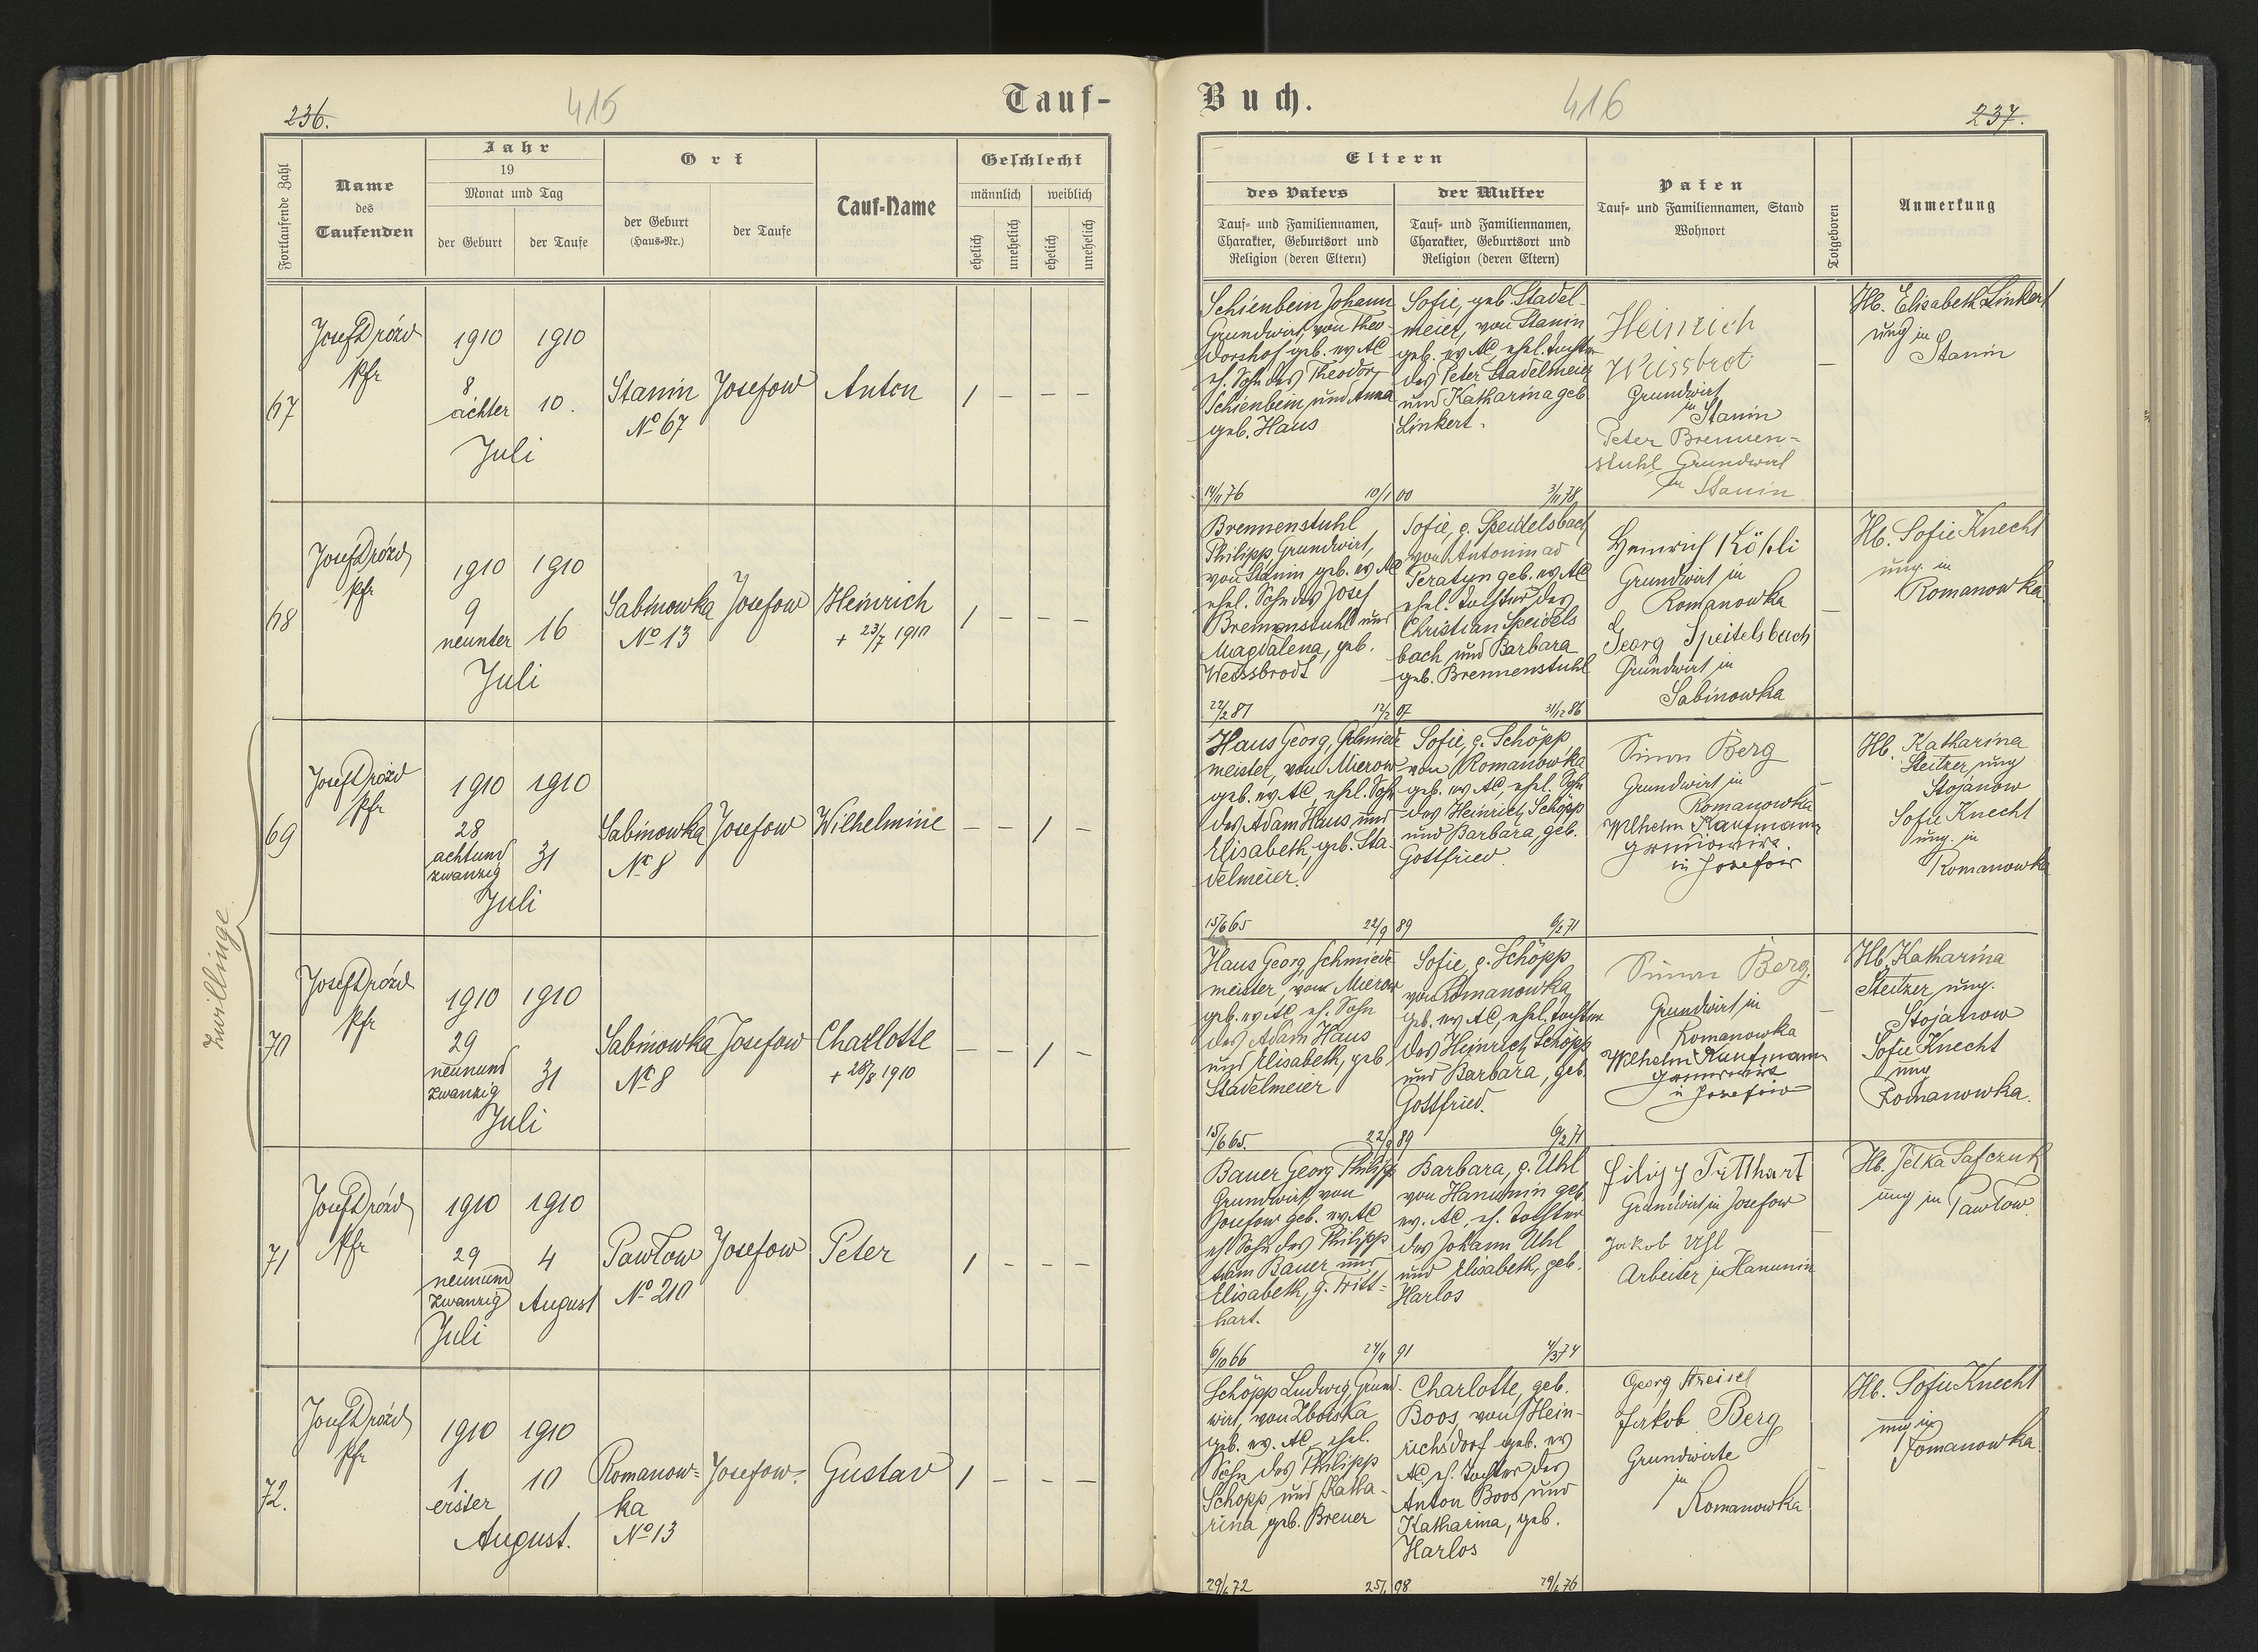 236.
415
Tauf-
Fortlaufende Zahl
Name
des
Taufenden
Jahr
19
Monat und Tag
der Geburt
der Taufe
Ort
der Geburt
(Haus-Nr.)
der Taufe
Tauf-Name
Geschlecht
männlich
weiblich
ehelich
unehelich
ehelich
unehelich
67
Josef Drózd
Pfr
1910 1910
8
achter 10.
Juli
Stanin Josefow
No 67
Anton
1 – – –
68
Josef Drózd
Pfr
1910 1910
9
neunter 16
Juli
Sabinowka Josefow
No 13
Heinrich
+ 23/7 1910
1 – – –
Zwillinge
69
Josef Drózd
Pfr
1910 1910
28
achtund
zwanzig 31
Juli
Sabinowka Josefow
No 8
Wilhelmine
– – 1 –
70
Josef Drózd
Pfr
1910 1910
29
neunund
zwanzig 31
Juli
Sabinowka Josefow
No 8
Charlotte
+ 28/8 1910
– – 1 –
71
Josef Drózd
Pfr
1910 1910
29 4
neunund
zwanzig August
Juli
Pawlow Josefow
No 210
Peter
1 – – –
72.
Josef Drózd
Pfr
1910 1910
1. 10
erster
August.
Romanow= Josefow.
ka
No 13
Gustav
1 – – –
Buch.
416
237.
Eltern
des Vaters
Tauf- und Familiennamen,
Charakter, Geburtsort und
Religion (deren Eltern)
der Mutter
Tauf- und Familiennamen,
Charakter, Geburtsort und
Religion (deren Eltern)
Paten
Tauf- und Familiennamen, Stand
Wohnort
Totgeboren
Anmerkung
Schienbein Johann
Grundwirt, von Theo-
dorshof geb. ev AC
eh. Sohn des Theodor
Schienbein und Anna
geb. Haus
Sofie, geb. Stadel-
meier, von Stanin
geb. ev AC, ehel. Tochter
des Peter Stadelmeier
und Katharina geb
Linkert.
10/1 00
Heinrich
Weissbrot
Grundwirt
in Stanin
Peter Brennen-
stuhl Grundwirt
in Stanin
–
Hb. Elisabeth Linkert
ung in
Stanin
Brennenstuhl
Philipp Grundwirt,
von Stanin geb. ev AC
ehel. Sohn des Josef
Brennenstuhl und
Magdalena, geb.
Weissbrodt
22/2 81
Sofie, g. Speidelsbach
von Antonin ad
Peratyn geb. ev AC
ehel. Tochter des
Christian Speidels
bach und Barbara
geb. Brennenstuhl
12/2 07
31/12 86
Heinrich Köhli
Grundwirt in
Romanowka
Georg Speitelsbach
Grundwirt in
Sabinowka
–
Hb. Sofie Knecht
ung. in
Romanowka
Haus Georg, Schmiede
meister, von Mierow
geb. ev AC, ehel. Sohn
des Adam Haus und
Elisabeth, geb. Sta-
delmeier.
15/6 65
Sofie, g. Schöpp
von Romanowka
geb. ev AC ehel. Sohn
des Heinrich Schöpp
und Barbara, geb.
Gottfried.
22/9 89
6/2 71
Simon Berg
Grundwirt in
Romanowka
Wilhelm Kaufmann
in Josefow
–
Hb. Katharina
Steitzer ung
Stojanow
Sofie Knecht
ung in
Romanowka
Haus Georg, Schmiede
meister, von Mierow
geb. ev AC, eh. Sohn
des Adam Haus
und Elisabeth, geb
Stadelmeier
15/6 65.
Sofie g. Schöpp
von Romanowka
geb. ev AC, ehel. Tochter
des Heinrich Schöpp
und Barbara, geb.
Gottfried.
22/9 89
6/2 71
Simon Berg.
Grundwirt in
Romanowka
Wilhelm Kaufmann
in Josefow
–
Hb. Katharina
Steitzer ung.
Stojanow
Sofie Knecht
ung
Romanowka.
Bauer Georg Philipp
Grundwirt, von
Josefow geb. ev AC
eh Sohn des Philipp
Adam Bauer und
Elisabeth, g. Tritt=
hart.
6/10 66
Barbara, g. Uhl
von Hanunin geb.
ev. AC, eh. Tochter
des Johann Uhl
und Elisabeth, geb.
Harlos
24/11 91
4/3 74
Filipp Tritthart
Grundwirt in Josefow
Jakob Uhl
Arbeiter in Hanunin
–
Hb. Jelka Safczuk
ung in Pawlow
Schöpp Ludwig, Grund-
wirt, von Zboiska
geb. ev. AC, ehel.
Sohn des Philipp
Schöpp und Katha-
rina geb. Breuer
Charlotte, geb.
Boos, von Hein-
richsdorf geb. ev
AC, eh. Tochter des
Anton Boos und
Katharina, geb.
Harlos
Georg
Jakob Berg
Grundwirte
in
Romanowka
–
Hb. Sofie Knecht
ung in
Romanowka